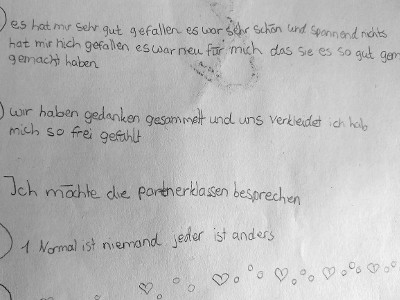 es hat mir sehr gut gefallen es war sehr schön und spannend nichts
hat mir nich gefallen es war neu für mich das sie es so gut gem
gemacht haben
) wir haben gedanken gesammelt und uns verkleidet ich hab
mich so frei gefühlt
Ich möchte die partnerklassen besprechen
1 Normal ist niemand jeder ist anders